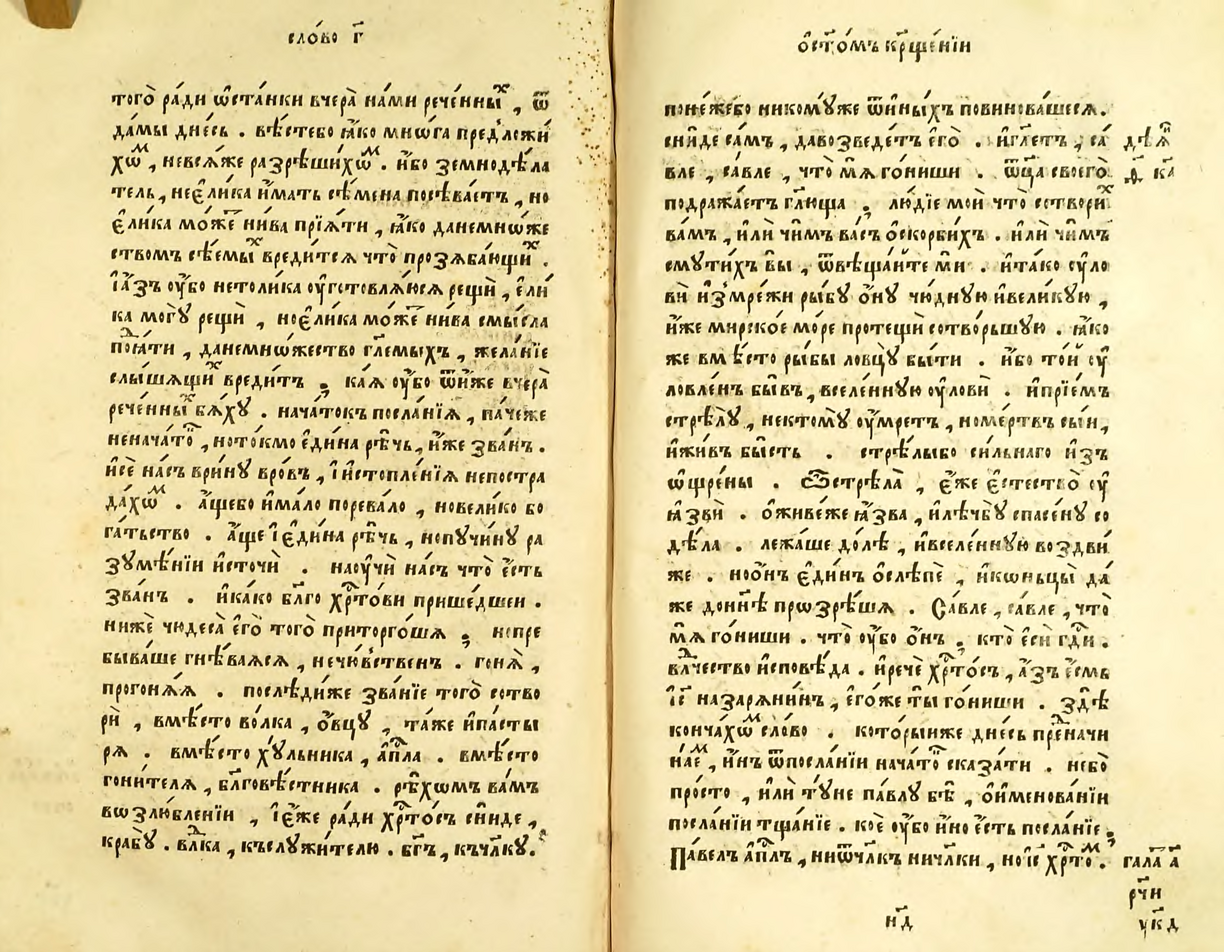 сло́во г҃
того̀ ра́ди ѡ҆ста́нки вчера̀ на́ми рече́нныⷯ , ѿ
да́мы дне́сь . вѣ́стебо ꙗ҆́ко мно́га пред̾ложи́
хѡⷨ , невсѧ́же разрѣши́хѡⷨ . и҆́бо земнодѣ́ла
тель , нее҆ли́ка и҆́мать сѣ́мена посѣва́етъ , но
є҆ли́ка мо́жеⷮ ни́ва прїѧ́ти , ꙗ҆́ко данемно́же
ствомъ сѣ́емыⷯ вреди́тсѧ что̀ прозѧба́ющиⷯ .
і҆а҆́зъ ᲂу҆̀бо нето́лика ᲂу҆готовлѧ́юсѧ рещѝ , є҆ли́
ка могꙋ̀ рещѝ , ное҆ли́ка мо́жеⷮ ни́ва смы́сла
поꙗ́ти , данемно́жество гл҃емыхъ , жела́нїе
слы́шѧщиⷯ вреди́тъ ; ка́ѧ ᲂу҆̀бо ѿни́же вчера̀
рече́нныⷯ бѧ́хꙋ . нача́токъ посла́нїѧ , па́чеже
ненача́тоⷦ , ното́кмо є҆ди́на рѣ́чь , и҆́же зва́нъ .
и҆сѐ на́съври́нꙋ вро́въ , і҆и҆стопле́нїѧ непостра
да́хѡⷨ . а҆́щебо и҆ма́ло порева́ло , новели́ко бо
га́тьство . а҆́ще і҆є҆ди́на рѣ́чь , нопꙋчи́нꙋ ра
зꙋмѣ́нїи и҆сточѝ . наꙋчѝ на́съ что̀ є҆́сть
зва́нъ . и҆ка́ко бл҃го хрⷭ҇то́ви прише́дшеи .
нижѐ чюдеса̀ є҆го̀ того̀ приторго́шѧ ; не́пре
быва́ше гнѣ́ваѧсѧ , нечю́вственъ . гонѧ̀ ,
прогонѧ́ѧ . послѣди́же зва́нїе того̀ сотво
рѝ , вмѣ́сто во́лка , ѻ҆́вцꙋ , та́же и҆па́сты
рѧ . вмѣ́сто хꙋ́льника , а҆пⷭ҇ла . вмѣ́сто
гони́телѧ , бл҃говѣ́стника . рѣ́хомъ ва́мъ
возлю́бленїи , і҆є҆́же ра́ди хрⷭ҇то́съ сни́де ,
крабꙋ̀ . влⷣка , къслꙋжи́телю . бг҃ъ , къчл҃кꙋ .
ѻ҆ст҃о́мъ крⷭ҇ще́нїи
поне́жебо никомꙋ́же ѿи́ныхъ повинова́шесѧ .
сни́де са́мъ , давозведе́тъ є҆го̀ . и҆гл҃етъ , са́
вле , са́вле , что̀ мѧ̀ го́ниши . ѿц҃а своего̀
подража́етъ гл҃юща ; лю́дїе моѝ что̀ сотвори́ⷯ
ва́мъ , и҆лѝ чи́мъ ва́съ ѻ҆скорби́хъ . и҆лѝ чи́мъ
смꙋти́хъ вы̀ , ѿвѣща́йте мѝ . и҆та́ко ᲂу҆ло
вѝ и҆́змрежи ры́бꙋ ѻ҆́нꙋ чю́днꙋю и҆вели́кꙋю ,
и҆́же мирско́е мо́ре протещѝ сотво́рьшꙋю . ꙗ҆́ко
же вмѣ́сто ры́бы ловцꙋ̀ бы́ти . и҆́бо то́й ᲂу҆
ловле́нъ бы́въ , вселе́ннꙋю ᲂу҆ловѝ . и҆прїе́мъ
стрѣлꙋ̀ , некто́мꙋ ᲂу҆́мретъ , номе́ртвъ сы́и ,
и҆жи́въ бы́сть . стрѣ́лыбо си́льнаго и҆зъ
ѡ҆щре́ны . Ѽстрѣла̀ , є҆́же є҆стество̀ ᲂу҆
ꙗ҆звѝ . ѻ҆живе́же ꙗ҆́зва , и҆лѣ́чбꙋ спасе́нꙋ со
дѣ́ла . лежа́ше до́лѣ , и҆вселе́ннꙋю воздви́
же . ноѻ҆́нъ є҆ди́нъ ѻ҆слѣ́пе , и҆ко́ньцы да́
же дони́нѣ прозрѣ́шѧ . Са́вле , са́вле , что̀
мѧ̀ го́ниши . что̀ ᲂу҆̀бо ѻ҆́нъ ; кто̀ є҆сѝ гдⷭ҇и .
влⷣчество и҆сповѣ́да . и҆речѐ хрⷭ҇то́съ , а҆́зъ є҆́смь
і҆с҃ назарѧни́нъ , є҆го́же ты̀ го́ниши . здѣ̀
конча́хѡⷨ сло́во . кото́рыиже дне́сь преⷣначи
на́еⷨ , и҆нъ ѿпосла́нїи нача́тоⷦ сказа́ти . небо̀
про́сто , и҆лѝ тꙋ́не па́влꙋ бѣ̀ , ѻ҆и҆менова́нїи
посла́нїи тща́нїе . ко́е ᲂу҆̀бо и҆но є҆́сть посла́нїе ;
Па́велъ а҆пⷭ҇лъ , ниѿчл҃къ ничл҃ки , ноі҆с҃ хрⷭ҇то́ⷨ .
дѣѧⷩ҇
д҃ ка
гала̀ а҃
рⷱ҇ни
ᲂук҃д
н҃д